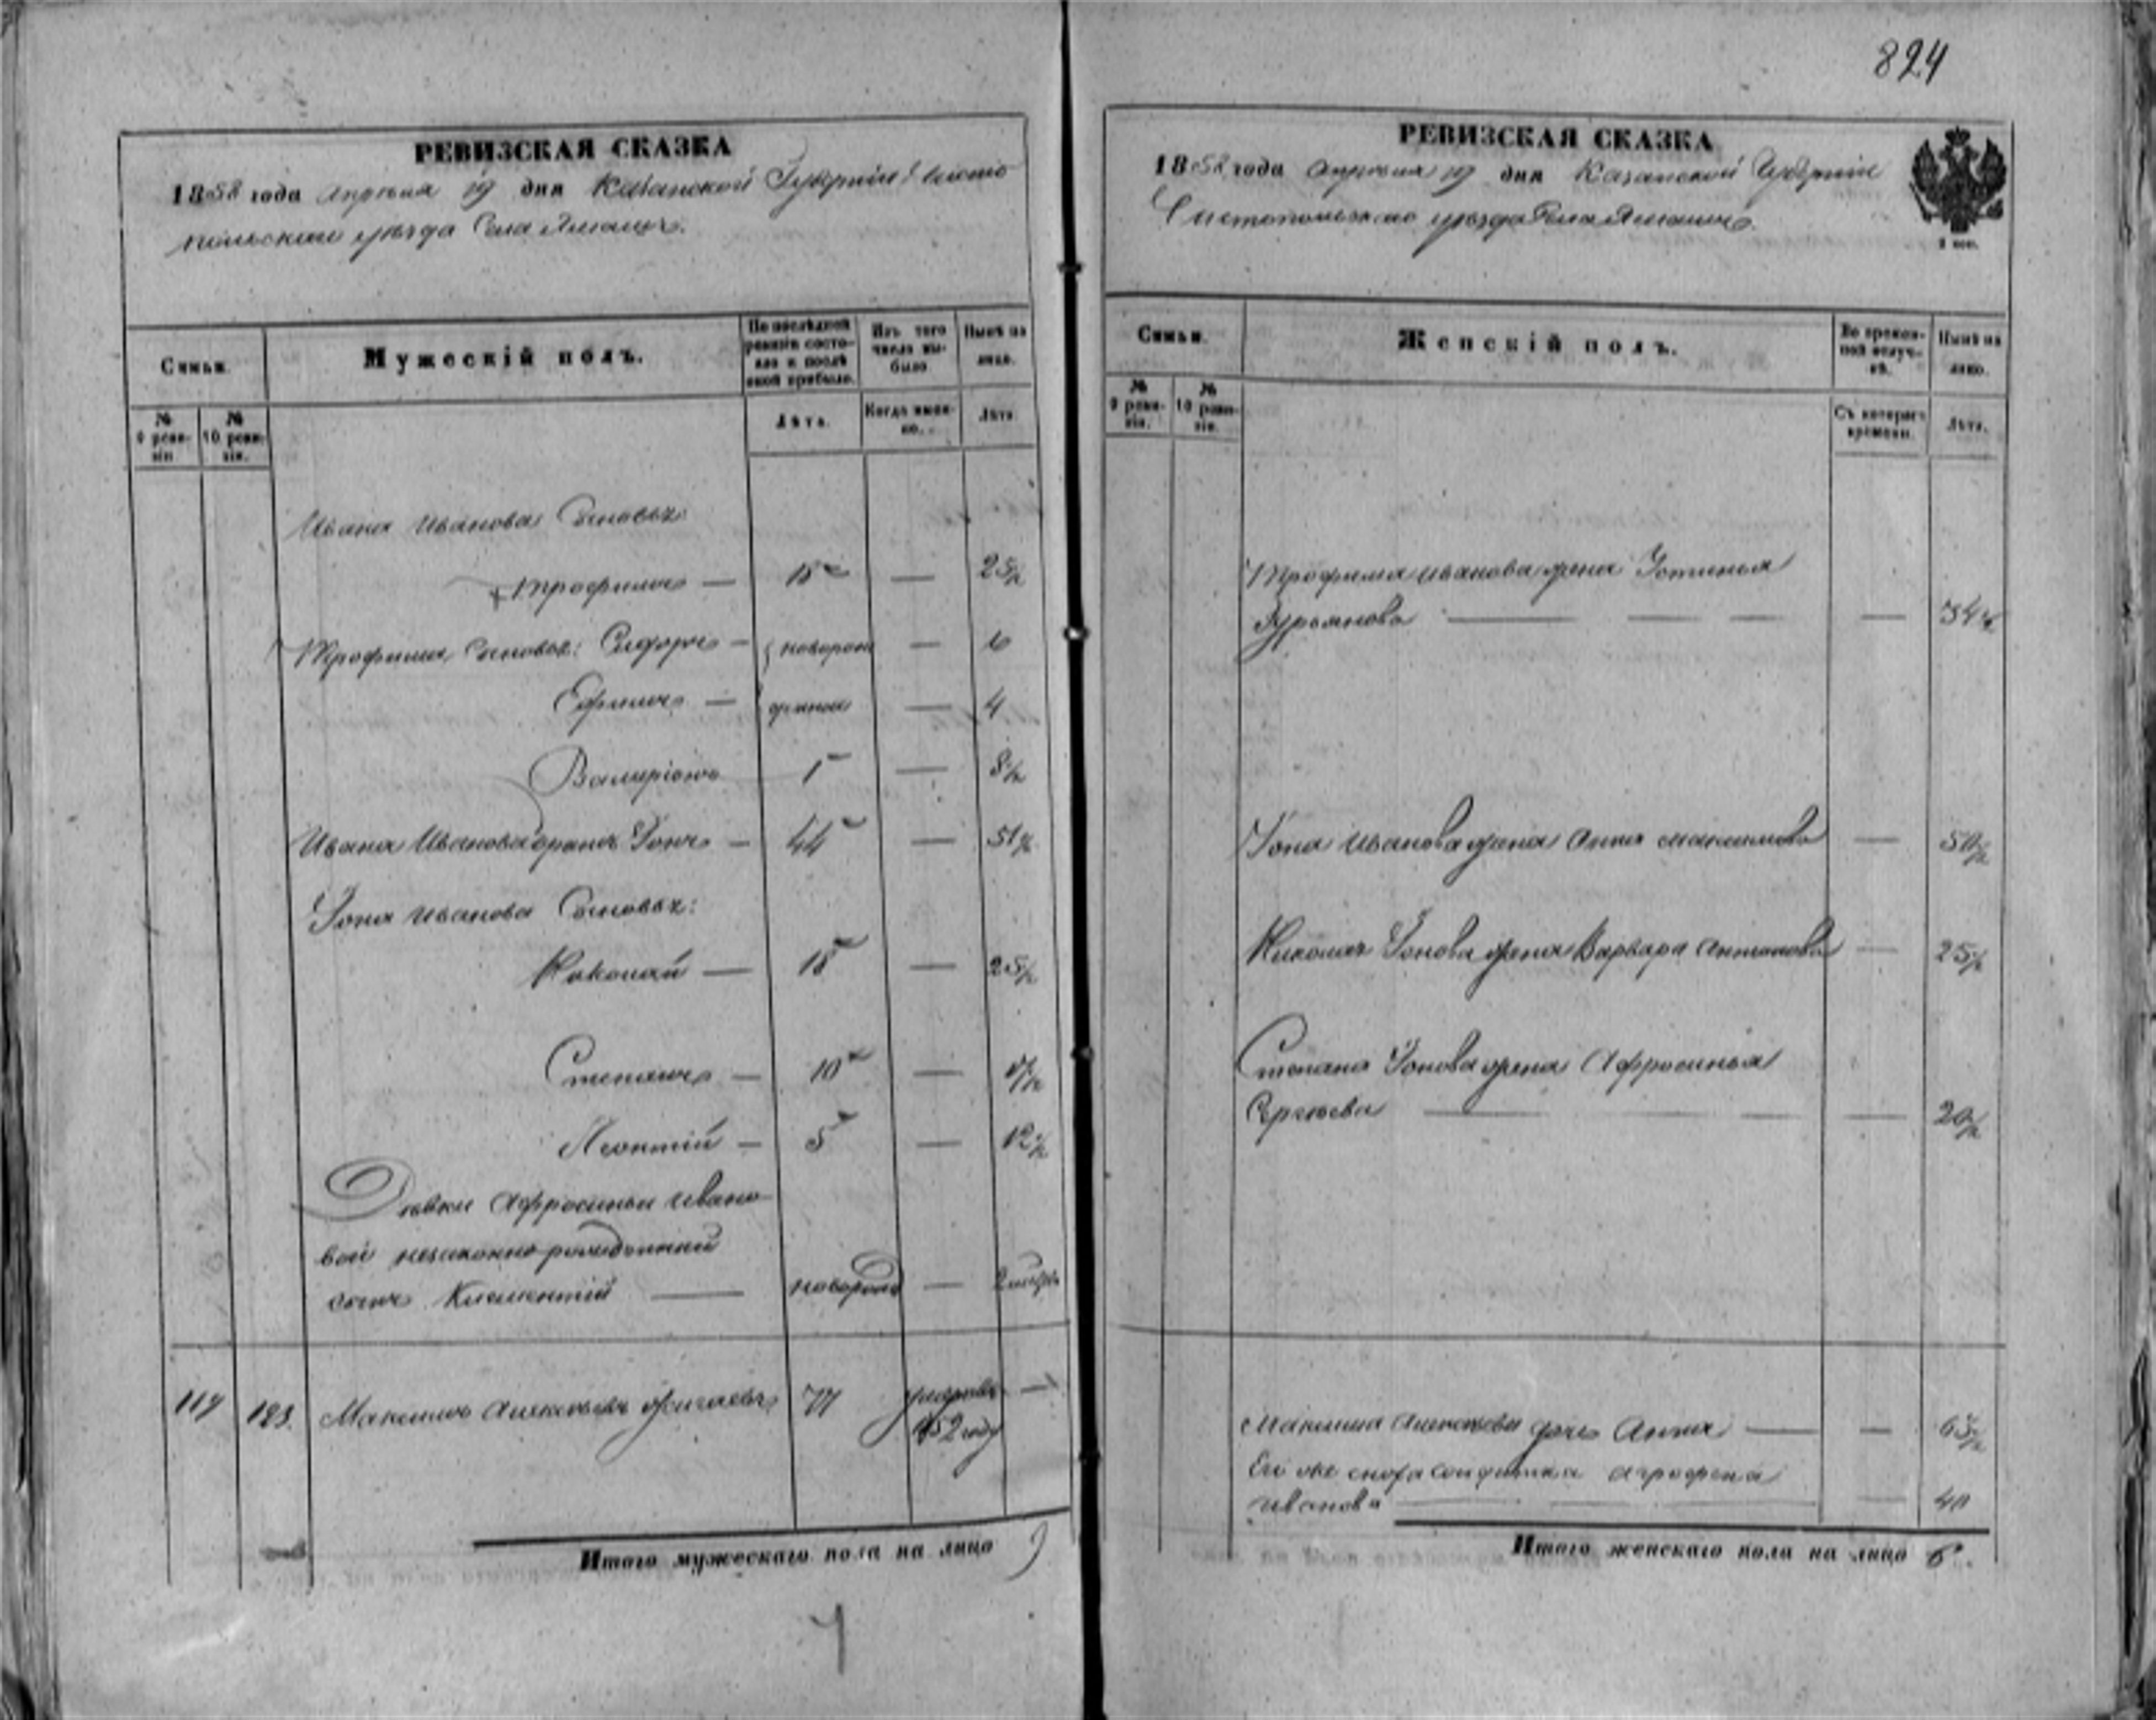 824
РЕВИЗСКАЯ СКАЗКА
1858 года апреля 19 дня Казанской Губернiи Чисто
польскаго уѣзда Села
Семьи.
Мужескiй полъ.
По послѣдней ревизiи состояло и послѣ оной прибыло.
Изъ того числа выбыло
Нынѣ на лицо.
№ 9 ревизiи
№ 10 ревизiи.
Лѣта.
Когда именно.
Лѣта.
Ивана Иванова Сыновья:
Трофимъ — 18 — 25½
Трофима Сыновья: Сидоръ — новорож — 6
Ефимъ — денной — 4
Валерiанъ 1 — 8½
Ивана Иванова братъ Iона — 44 — 51½
Iона Иванова Сыновья:
Николай — 18 — 25½
Степанъ — 10 — 17½
Леонтiй — 5 — 12½
Дѣвки Афросиньи Ивано
вой незаконно рожденный
сынъ Климентiй — новорож —
119 123. Максимъ Алексѣевъ 77 умеръ въ —
1852 году
Итого мужескаго пола на лицо 9
РЕВИЗСКАЯ СКАЗКА
1858 года апреля 19 дня Казанской Губернiи
Чистопольскаго уѣзда Села
Семьи.
Женскiй полъ.
Во временной отлучкѣ.
Нынѣ на лицо.
№ 9 ревизiи.
№ 10 ревизiи.
Съ котораго времени.
Лѣта.
Трофима Иванова жена Устинья
Гурьянова — — — — 34½
Iона Иванова жена Анна Максимова — 50½
Николая Iонова жена Варвара Антонова — 25½
Степана Iонова жена Афросинья
Сергѣева — — — 20½
Максима Алексѣева дочь Анна — — 63½
Ево же сноха солдатка Агрофена
Иванова — — — 40
Итого женскаго пола на лицо 6.